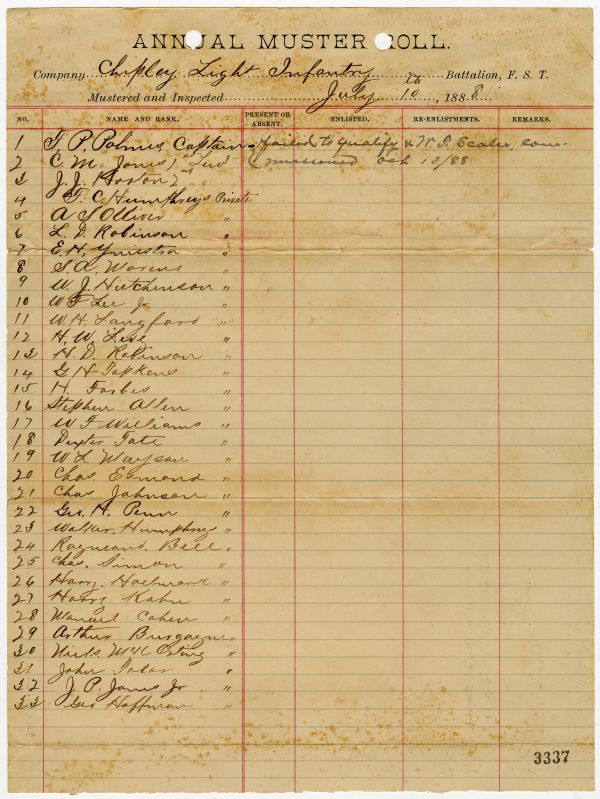 ANNUAL MUSTER ROLL.
Company Chipley Light Infantry Battalion, F. S. T.
Mustered and Inspected July 10th, 1888.
NO. NAME AND RANK. PRESENT OR ABSENT. ENLISTED. RE-ENLISTMENTS. REMARKS.
1 T. P. Palmes Captain failed to qualify & W. J. com-
2 C. M. Jones 1 Lieut missioned Oct 10/88
3 J. J. Horton 2nd "
4 T. C. Humphreys Private
5 A S Olliver "
6 L. D. Robinson "
7 E. H. Yniestra "
8 S. A. "
9 W. J. Hutchinson "
10 W F Lee Jr "
11 W. H. Langford "
12 H. W. "
13 H. D. Robinson "
14 G H "
15 H. Forbes "
16 Stephen Allen "
17 W F Williams "
18 Dexter Tate "
19 W L Mayson "
20 Chas Esmond "
21 Chas Johnson "
22 Geo. H. Penn "
23 Walker Humphrey "
24 Raymond Bell "
25 Chas. Simon "
26 Harry "
27 Harry Kahn "
28 Cohen "
29 Arthur "
30 "
31 John "
32 J. P. Jones Jr "
33 Geo Hoffman "
3337